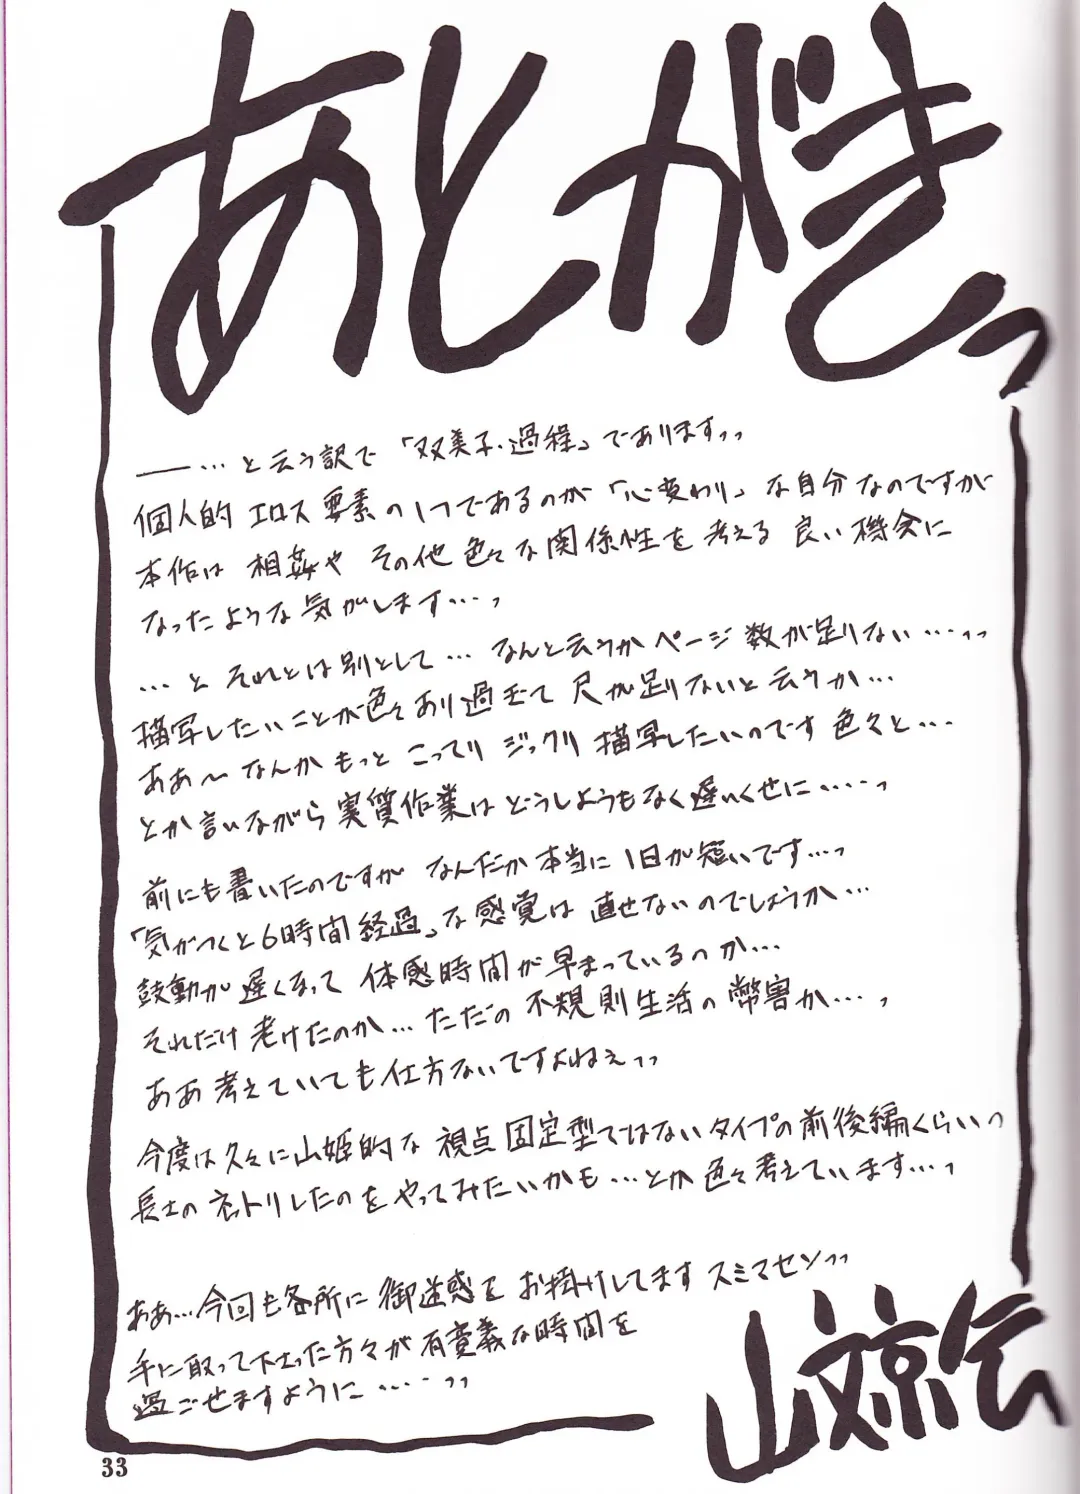 あとがきっ
――…と云う訳で「双美子・過程」でありますッッ
個人的エロス要素の1つであるのが「心変わり」な自分なのですが
本作は相姦やその他色々な関係性を考える良い機会に
なったような気がします…っ
…とそれとは別として…なんと云うかページ数が足りない…ッッ
描写したいことが色々あり過ぎて尺が足りないと云うか…
ああ〜なんかもっとこってりジックリ描写したいのです色々と…
とか言いながら実質作業はどうしようもなく遅いくせに……っ
前にも書いたのですがなんだか本当に1日が短いです…っ
「気がつくと6時間経過」な感覚は直せないのでしょうか…
鼓動が遅くなって体感時間が早まっているのか…
それだけ老けたのか…ただの不規則生活の弊害か…っ
ああ考えていても仕方ないですよねぇッッ
今度は久々に山姫的な視点固定型ではないタイプの前後編くらいの
長さのネットリしたのをやってみたいかも…とか色々考えています…っ
ああ…今回も各所に御迷惑をお掛けしてますスミマセンッッ
手に取って下さった方々が有意義な時間を
過ごせますように……ッッ
山文京伝
33